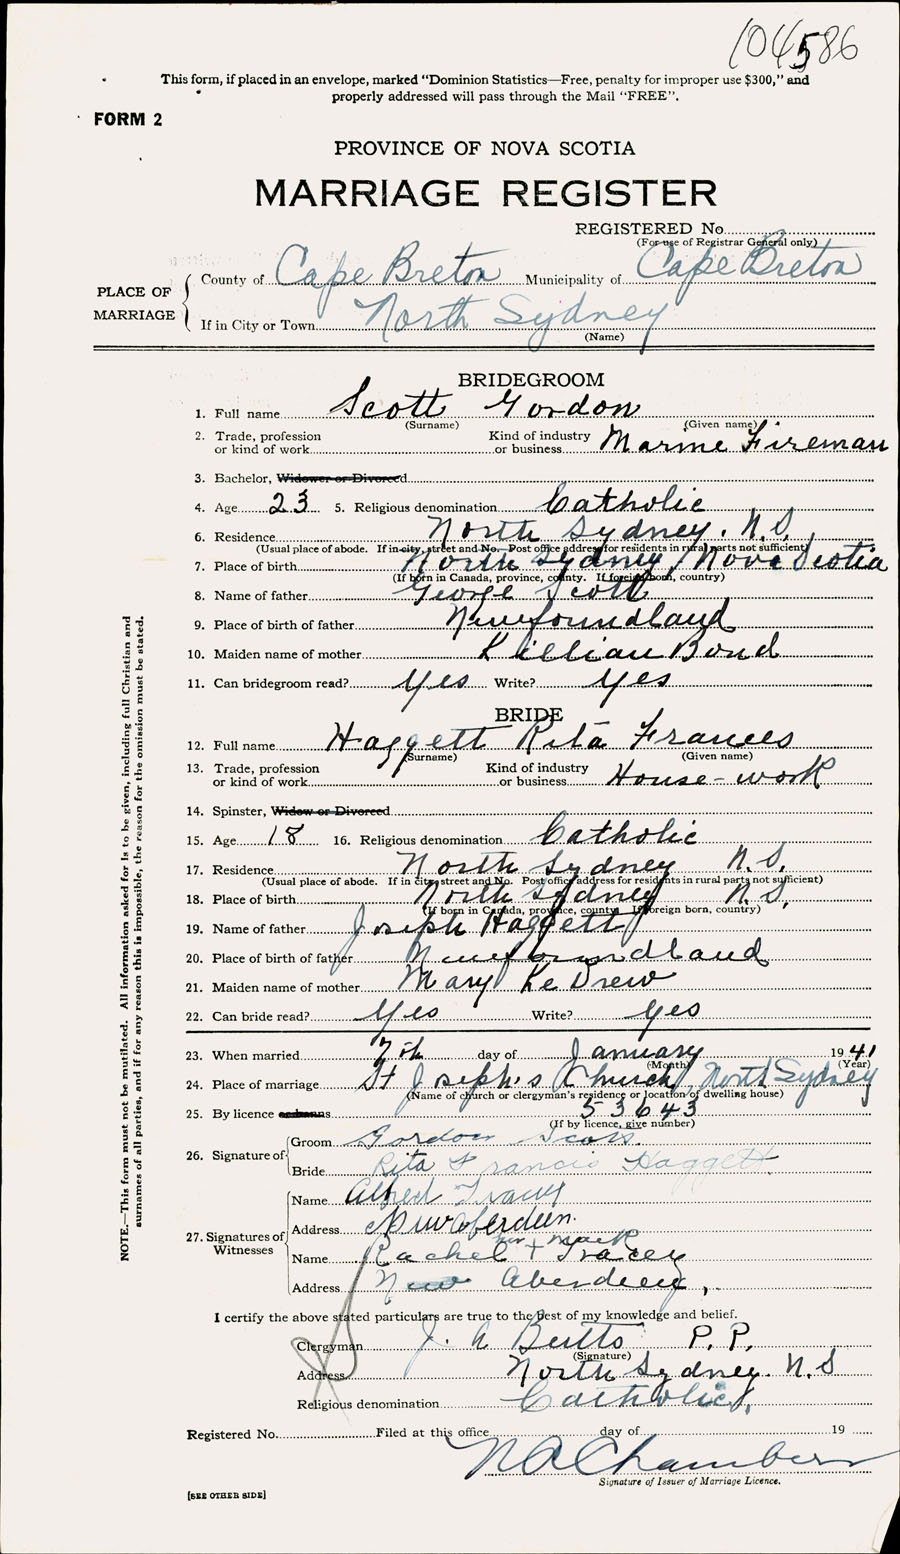 104586
This form, if placed in an envelope, marked "Dominion Statistics—Free, penalty for improper use $300," and
properly addressed will pass through the Mail "FREE".
FORM 2
PROVINCE OF NOVA SCOTIA
MARRIAGE REGISTER
REGISTERED No.
(For use of Registrar General only)
PLACE OF MARRIAGE
County of Cape Breton Municipality of Cape Breton
If in City or Town North Sydney
(Name)
BRIDEGROOM
1. Full name Scott Gordon
(Surname) (Given name)
2. Trade, profession or kind of work Kind of industry or business Marine Fireman
3. Bachelor, Widower or Divorced
4. Age 23 5. Religious denomination Catholic
6. Residence North Sydney. N.S.
(Usual place of abode. If in city, street and No. Post office address for residents in rural parts not sufficient)
7. Place of birth North Sydney, Nova Scotia
(If born in Canada, province, county. If foreign born, country)
8. Name of father George Scott
9. Place of birth of father Newfoundland
10. Maiden name of mother Lillian Bond
11. Can bridegroom read? Yes Write? Yes
BRIDE
12. Full name Haggett Rita Frances
(Surname) (Given name)
13. Trade, profession or kind of work Kind of industry or business House-work
14. Spinster, Widow or Divorced
15. Age 18 16. Religious denomination Catholic
17. Residence North Sydney N.S.
(Usual place of abode. If in city, street and No. Post office address for residents in rural parts not sufficient)
18. Place of birth North Sydney N.S.
(If born in Canada, province, county. If foreign born, country)
19. Name of father Joseph Haggett
20. Place of birth of father Newfoundland
21. Maiden name of mother Mary KeDrew
22. Can bride read? Yes Write? Yes
23. When married 7th day of January 1941
(Month) (Year)
24. Place of marriage St Joseph's Church, North Sydney
(Name of church or clergyman's residence or location of dwelling house)
25. By licence or banns 53643
(If by licence, give number)
26. Signature of
Groom Gordon Scott
Bride Rita Francis Haggett
27. Signatures of Witnesses
Name Alfred Tracey
Address New Aberdeen.
her mark
Name Rachel + Tracey
Address New Aberdeen,
I certify the above stated particulars are true to the best of my knowledge and belief.
Clergyman J. A Butts P.P.
(Signature)
Address North Sydney. N.S
Religious denomination Catholic.
Registered No. Filed at this office day of 19
N A Chambers
Signature of Issuer of Marriage Licence.
[SEE OTHER SIDE]
NOTE.—This form must not be mutilated. All information asked for is to be given, including full Christian and
surnames of all parties, and if for any reason this is impossible, the reason for the omission must be stated.